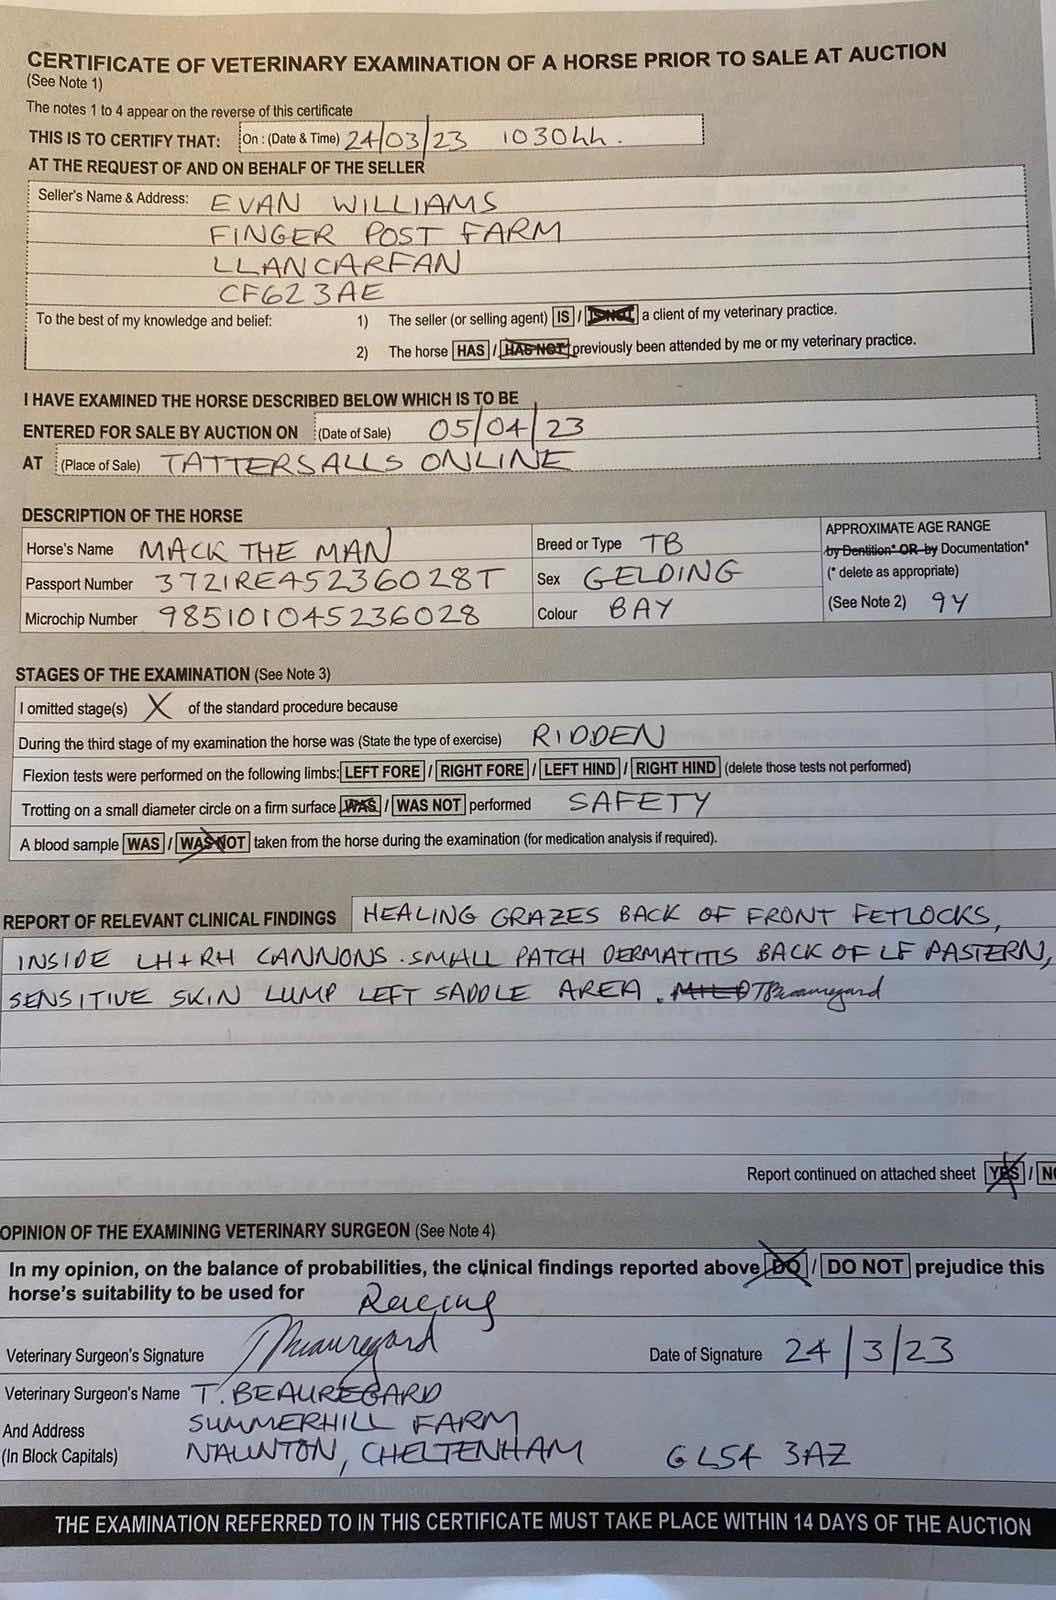 CERTIFICATE OF VETERINARY EXAMINATION OF A HORSE PRIOR TO SALE AT AUCTION
(See Note 1)
The notes 1 to 4 appear on the reverse of this certificate
THIS IS TO CERTIFY THAT: On : (Date & Time) 24/03/23 1030hh.
AT THE REQUEST OF AND ON BEHALF OF THE SELLER
Seller's Name & Address: EVAN WILLIAMS
FINGER POST FARM
LLANCARFAN
CF623AE
To the best of my knowledge and belief: 1) The seller (or selling agent) IS / IS NOT a client of my veterinary practice.
2) The horse HAS / HAS NOT previously been attended by me or my veterinary practice.
I HAVE EXAMINED THE HORSE DESCRIBED BELOW WHICH IS TO BE
ENTERED FOR SALE BY AUCTION ON (Date of Sale) 05/04/23
AT (Place of Sale) TATTERSALLS ONLINE
DESCRIPTION OF THE HORSE
Horse's Name MACK THE MAN Breed or Type TB APPROXIMATE AGE RANGE
by Dentition* OR by Documentation*
Passport Number 372IRE45236028T Sex GELDING (* delete as appropriate)
Microchip Number 985101045236028 Colour BAY (See Note 2) 9Y
STAGES OF THE EXAMINATION (See Note 3)
I omitted stage(s) X of the standard procedure because
During the third stage of my examination the horse was (State the type of exercise) RIDDEN
Flexion tests were performed on the following limbs: LEFT FORE / RIGHT FORE / LEFT HIND / RIGHT HIND (delete those tests not performed)
Trotting on a small diameter circle on a firm surface WAS / WAS NOT performed SAFETY
A blood sample WAS / WAS NOT taken from the horse during the examination (for medication analysis if required).
REPORT OF RELEVANT CLINICAL FINDINGS HEALING GRAZES BACK OF FRONT FETLOCKS,
INSIDE LH+RH CANNONS. SMALL PATCH DERMATITIS BACK OF LF PASTERN,
SENSITIVE SKIN LUMP LEFT SADDLE AREA. MILD TBeauregard
Report continued on attached sheet YES / NO
OPINION OF THE EXAMINING VETERINARY SURGEON (See Note 4)
In my opinion, on the balance of probabilities, the clinical findings reported above DO / DO NOT prejudice this
horse's suitability to be used for Racing
Veterinary Surgeon's Signature TBeauregard Date of Signature 24/3/23
Veterinary Surgeon's Name T. BEAUREGARD
And Address SUMMERHILL FARM
(In Block Capitals) NAUNTON, CHELTENHAM GL54 3AZ
THE EXAMINATION REFERRED TO IN THIS CERTIFICATE MUST TAKE PLACE WITHIN 14 DAYS OF THE AUCTION